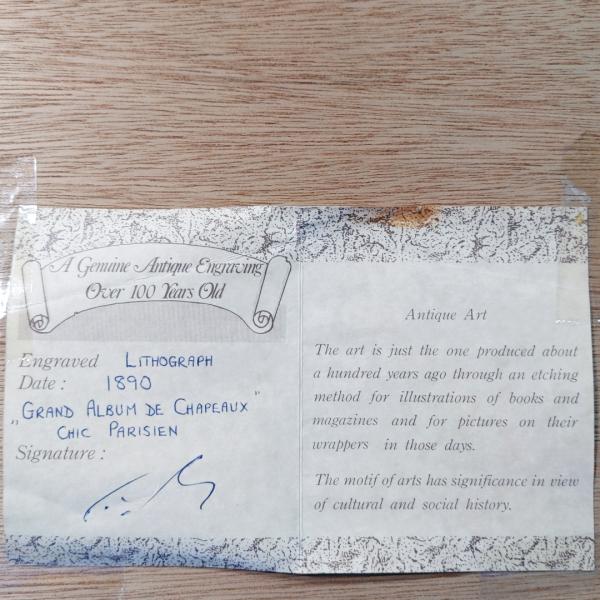 A Genuine Antique Engraving
Over 100 Years Old
Engraved LITHOGRAPH
Date : 1890
"GRAND ALBUM DE CHAPEAUX"
CHIC PARISIEN
Signature :
Antique Art
The art is just the one produced about
a hundred years ago through an etching
method for illustrations of books and
magazines and for pictures on their
wrappers in those days.
The motif of arts has significance in view
of cultural and social history.